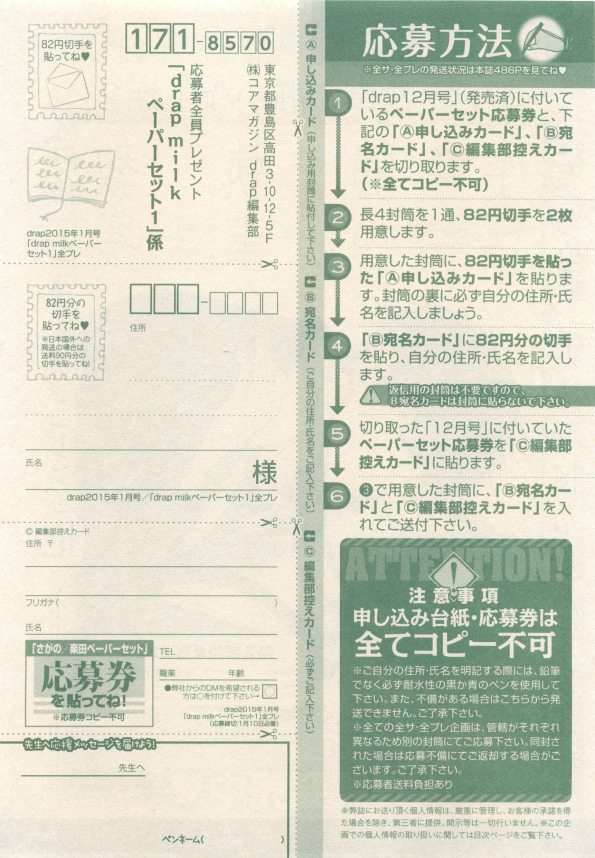 応募方法
※全サ・全プレの発送状況は本誌486Pを見てね♥
1
「drap12月号」(発売済)に付いて
いるペーパーセット応募券と、下
記の「Ⓐ申し込みカード」、「Ⓑ宛
名カード」、「Ⓒ編集部控えカー
ド」を切り取ります。
(※全てコピー不可)
2
長4封筒を1通、82円切手を2枚
用意します。
3
用意した封筒に、82円切手を貼っ
た「Ⓐ申し込みカード」を貼りま
す。封筒の裏に必ず自分の住所・氏
名を記入しましょう。
4
「Ⓑ宛名カード」に82円分の切手
を貼り、自分の住所・氏名を記入し
ます。
返信用の封筒は不要ですので、
Ⓑ宛名カードは封筒に貼らないで下さい。
5
切り取った「12月号」に付いていた
ペーパーセット応募券を「Ⓒ編集部
控えカード」に貼ります。
6
❸で用意した封筒に、「Ⓑ宛名カー
ド」と「Ⓒ編集部控えカード」を入
れてご送付下さい。
ATTENTION!
注意事項
申し込み台紙・応募券は
全てコピー不可
※ご自分の住所・氏名を明記する際には、鉛筆
でなく必ず耐水性の黒か青のペンを使用して
下さい。また、不備がある場合はこちらから発
送できません。ご了承下さい。
※全ての全サ・全プレ企画は、管轄がそれぞれ
異なるため別の封筒にてご応募下さい。同封さ
れた場合は応募不備にてご返却する場合がご
ざいます。ご了承下さい。
※応募者送料負担あり
※弊誌にお送り頂く個人情報は、厳重に管理し、お客様の承諾を得
た場合を除き、第三者に提供、開示等は一切行いません。※この企
画での個人情報の取り扱いに関しては目次ページをご覧下さい。
Ⓐ申し込みカード(申し込み用封筒に貼付して下さい)
Ⓑ宛名カード(ご自分の住所・氏名をご記入下さい)
Ⓒ編集部控えカード(必ずご記入下さい)
82円切手を
貼ってね♥
171-8570
東京都豊島区高田3-10-12-5F
(株)コアマガジン drap編集部
応募者全員プレゼント
「drap milk
ペーパーセット1」係
drap2015年1月号
「drap milkペーパー
セット1」全プレ
82円分の
切手を
貼ってね♥
※日本国外への
発送の場合は
送料90円分の
切手を貼ってね!
住所
氏名
様
drap2015年1月号/「drap milkペーパーセット1」全プレ
Ⓒ編集部控えカード
住所 〒
フリガナ( )
氏名
「さがの/楽田ペーパーセット」
応募券
を貼ってね!
※応募券コピー不可
TEL
職業 年齢
●弊社からのDMを希望される
方は○を付けて下さい→
drap2015年1月号
「drap milkペーパーセット1」全プレ
(応募締切:1月10日必着)
先生へ応援メッセージを届けよう!
先生へ
ペンネーム( )